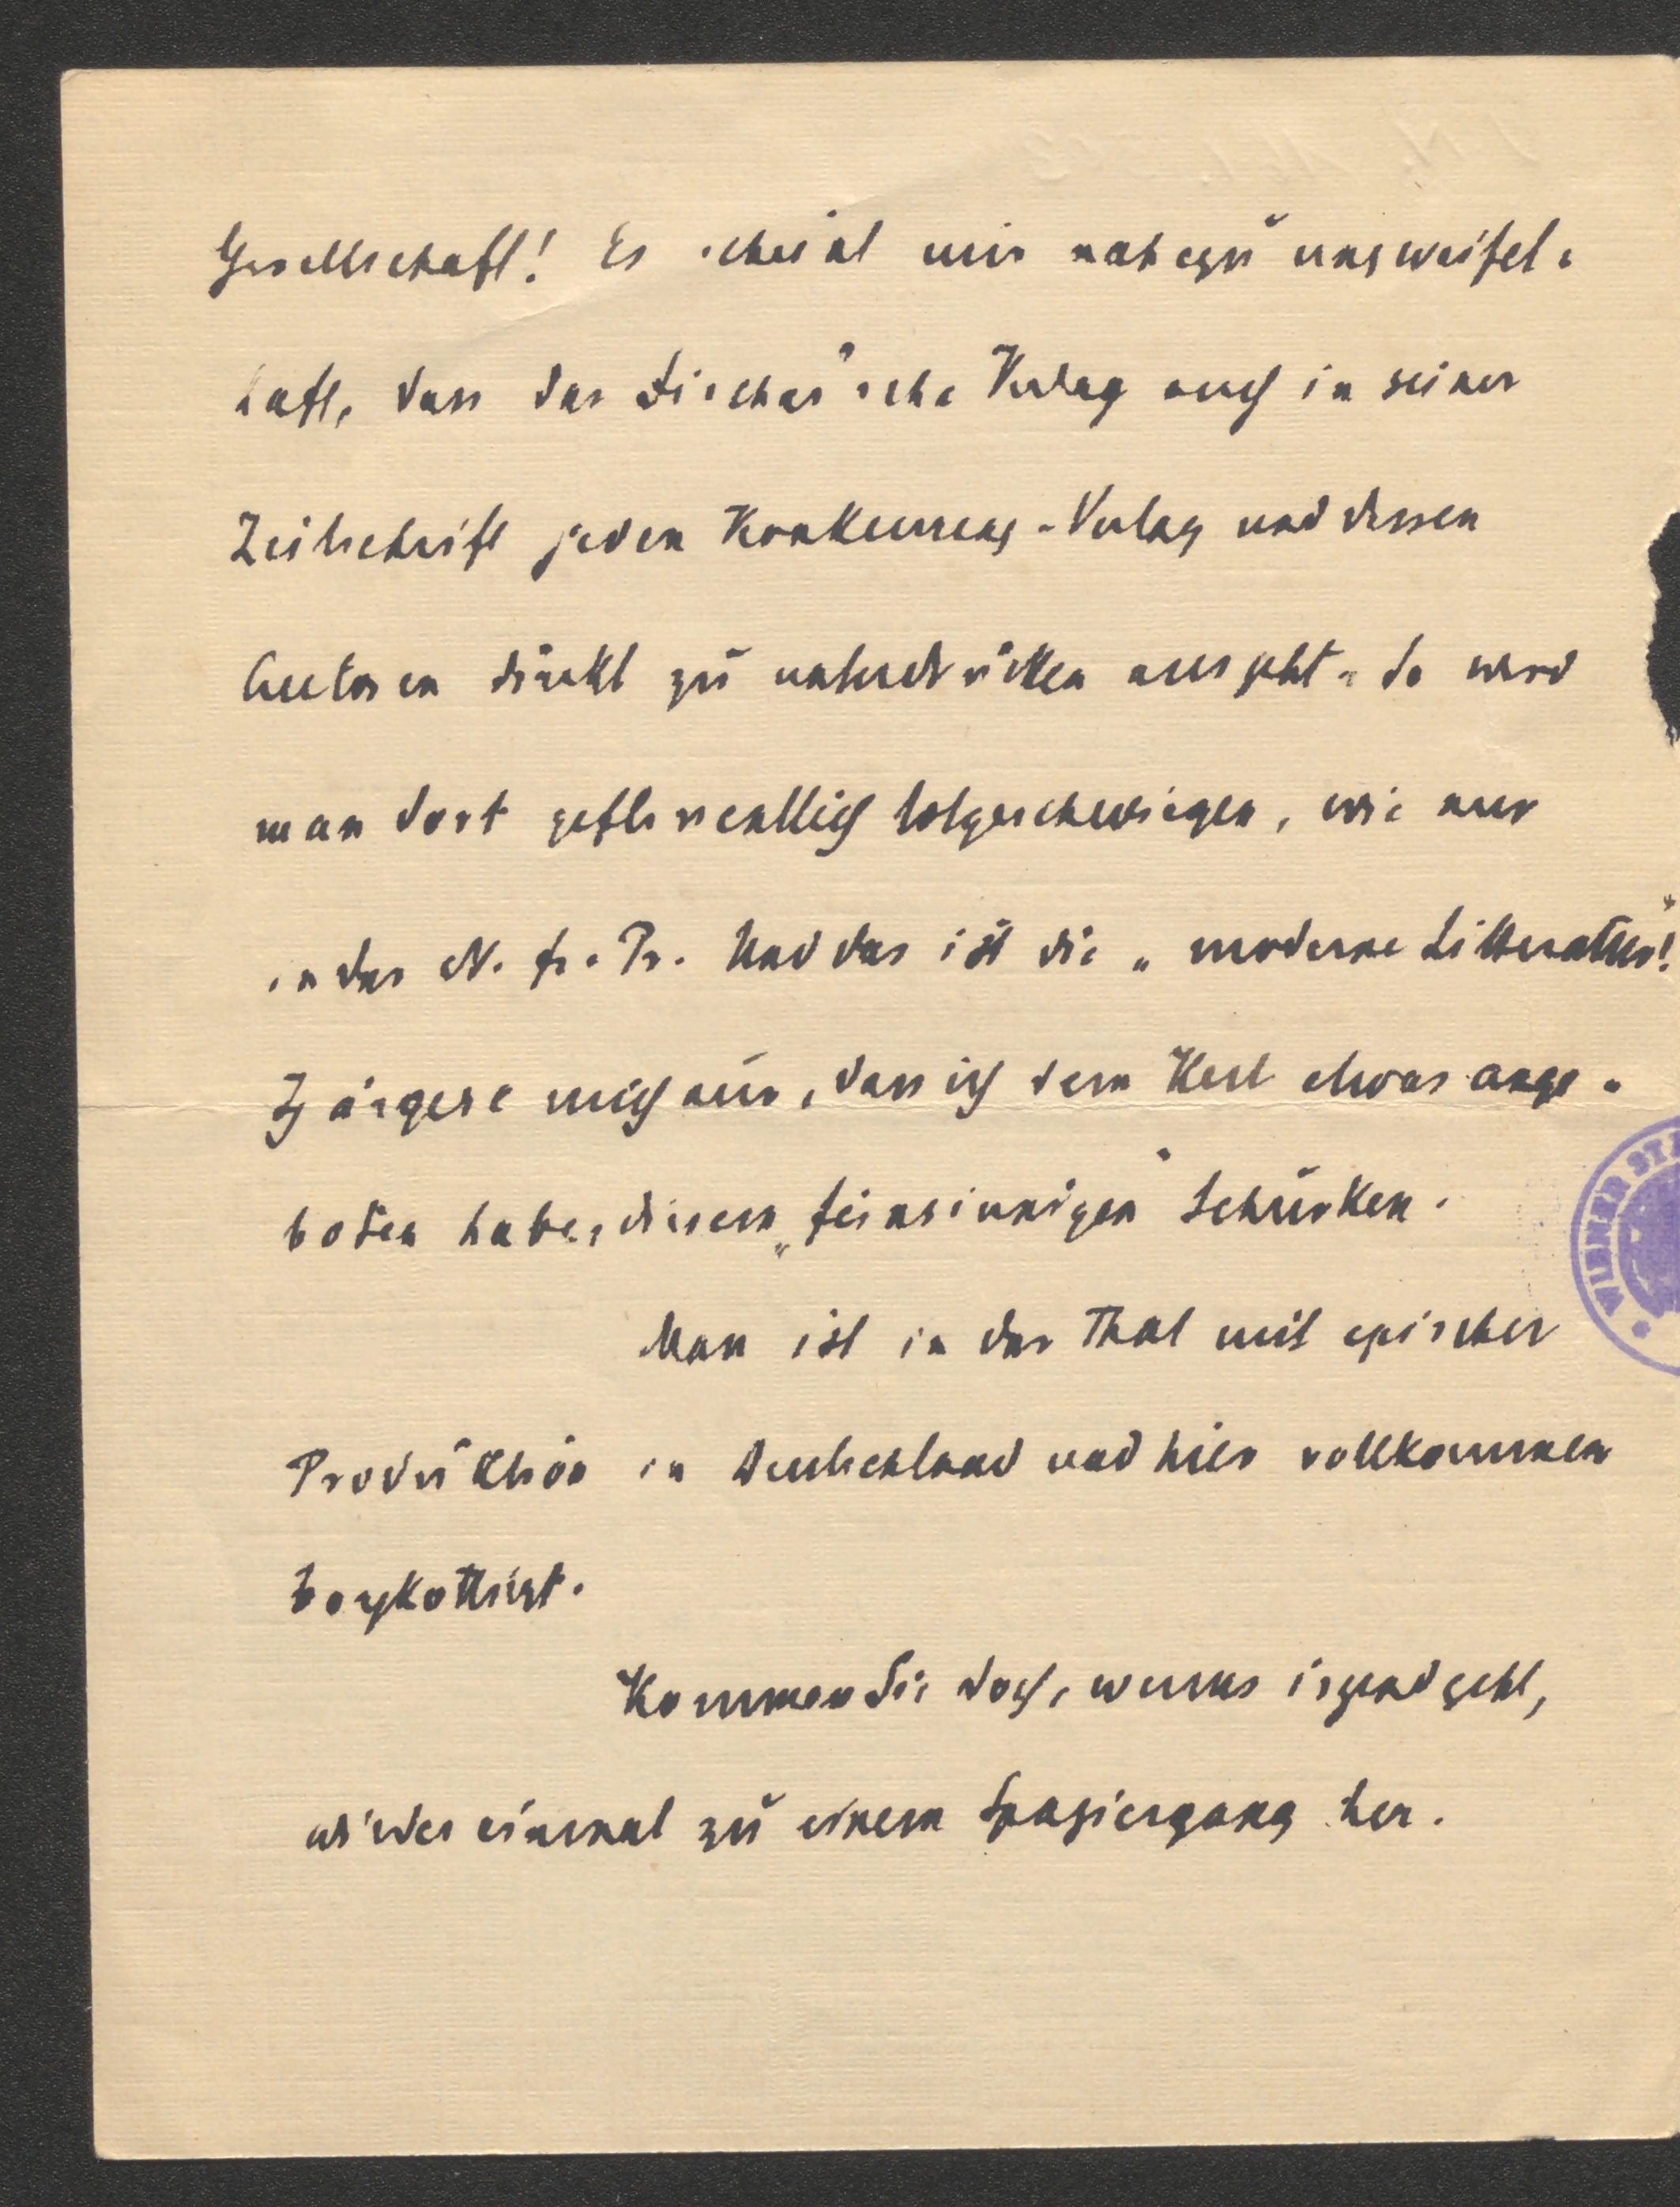 Gesellschaft! Es scheint mir nahezu unzweifel-
haft, dass der Fischer'sche Verlag auch in seiner
Zeitschrift jeden Konkurrenz-Verlag und dessen
Autoren direkt zu unterdrücken ausgeht. So wird
man dort geflissentlich totgeschwiegen, wie nur
in der N. fr. Pr. Und das ist die „moderne Litteratur"!
Ich ärgere mich nur, dass ich dem Kerl etwas ange-
boten habe, diesem „feinsinnigen" Schurken.
Man ist in der That mit epischer
Produktion in Deutschland und hier vollkommen
boykottiert.
Kommen Sie doch, wenns irgend geht,
wieder einmal zu einem Spaziergang her.
WIENER ST